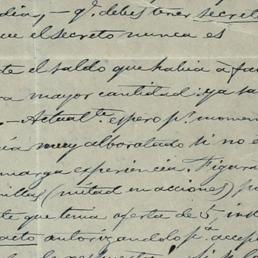 días, — q.e debes tener secreto
que el secreto nunca es
te el saldo que había á fav
ra mayor cantidad: ya sa
. — Actual.te espero p.r momen
ía muy alborotado si no e
amarga experiencia. Figura
nillas (mitad en acciones) po
te que tenia oferta de 5 inst
acto autorizandolo p.a acep